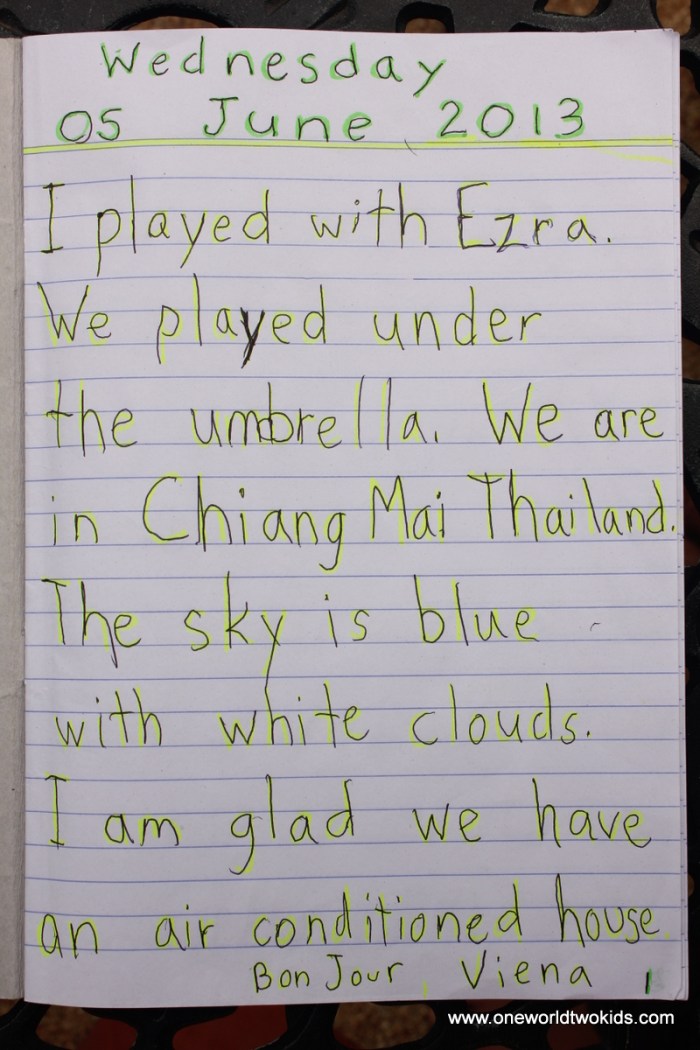 Wednesday
05 June 2013
I played with Ezra.
We played under
the umbrella. We are
in Chiang Mai Thailand.
The sky is blue
with white clouds.
I am glad we have
an air conditioned house.
Bon Jour, Viena
www.oneworldtwokids.com